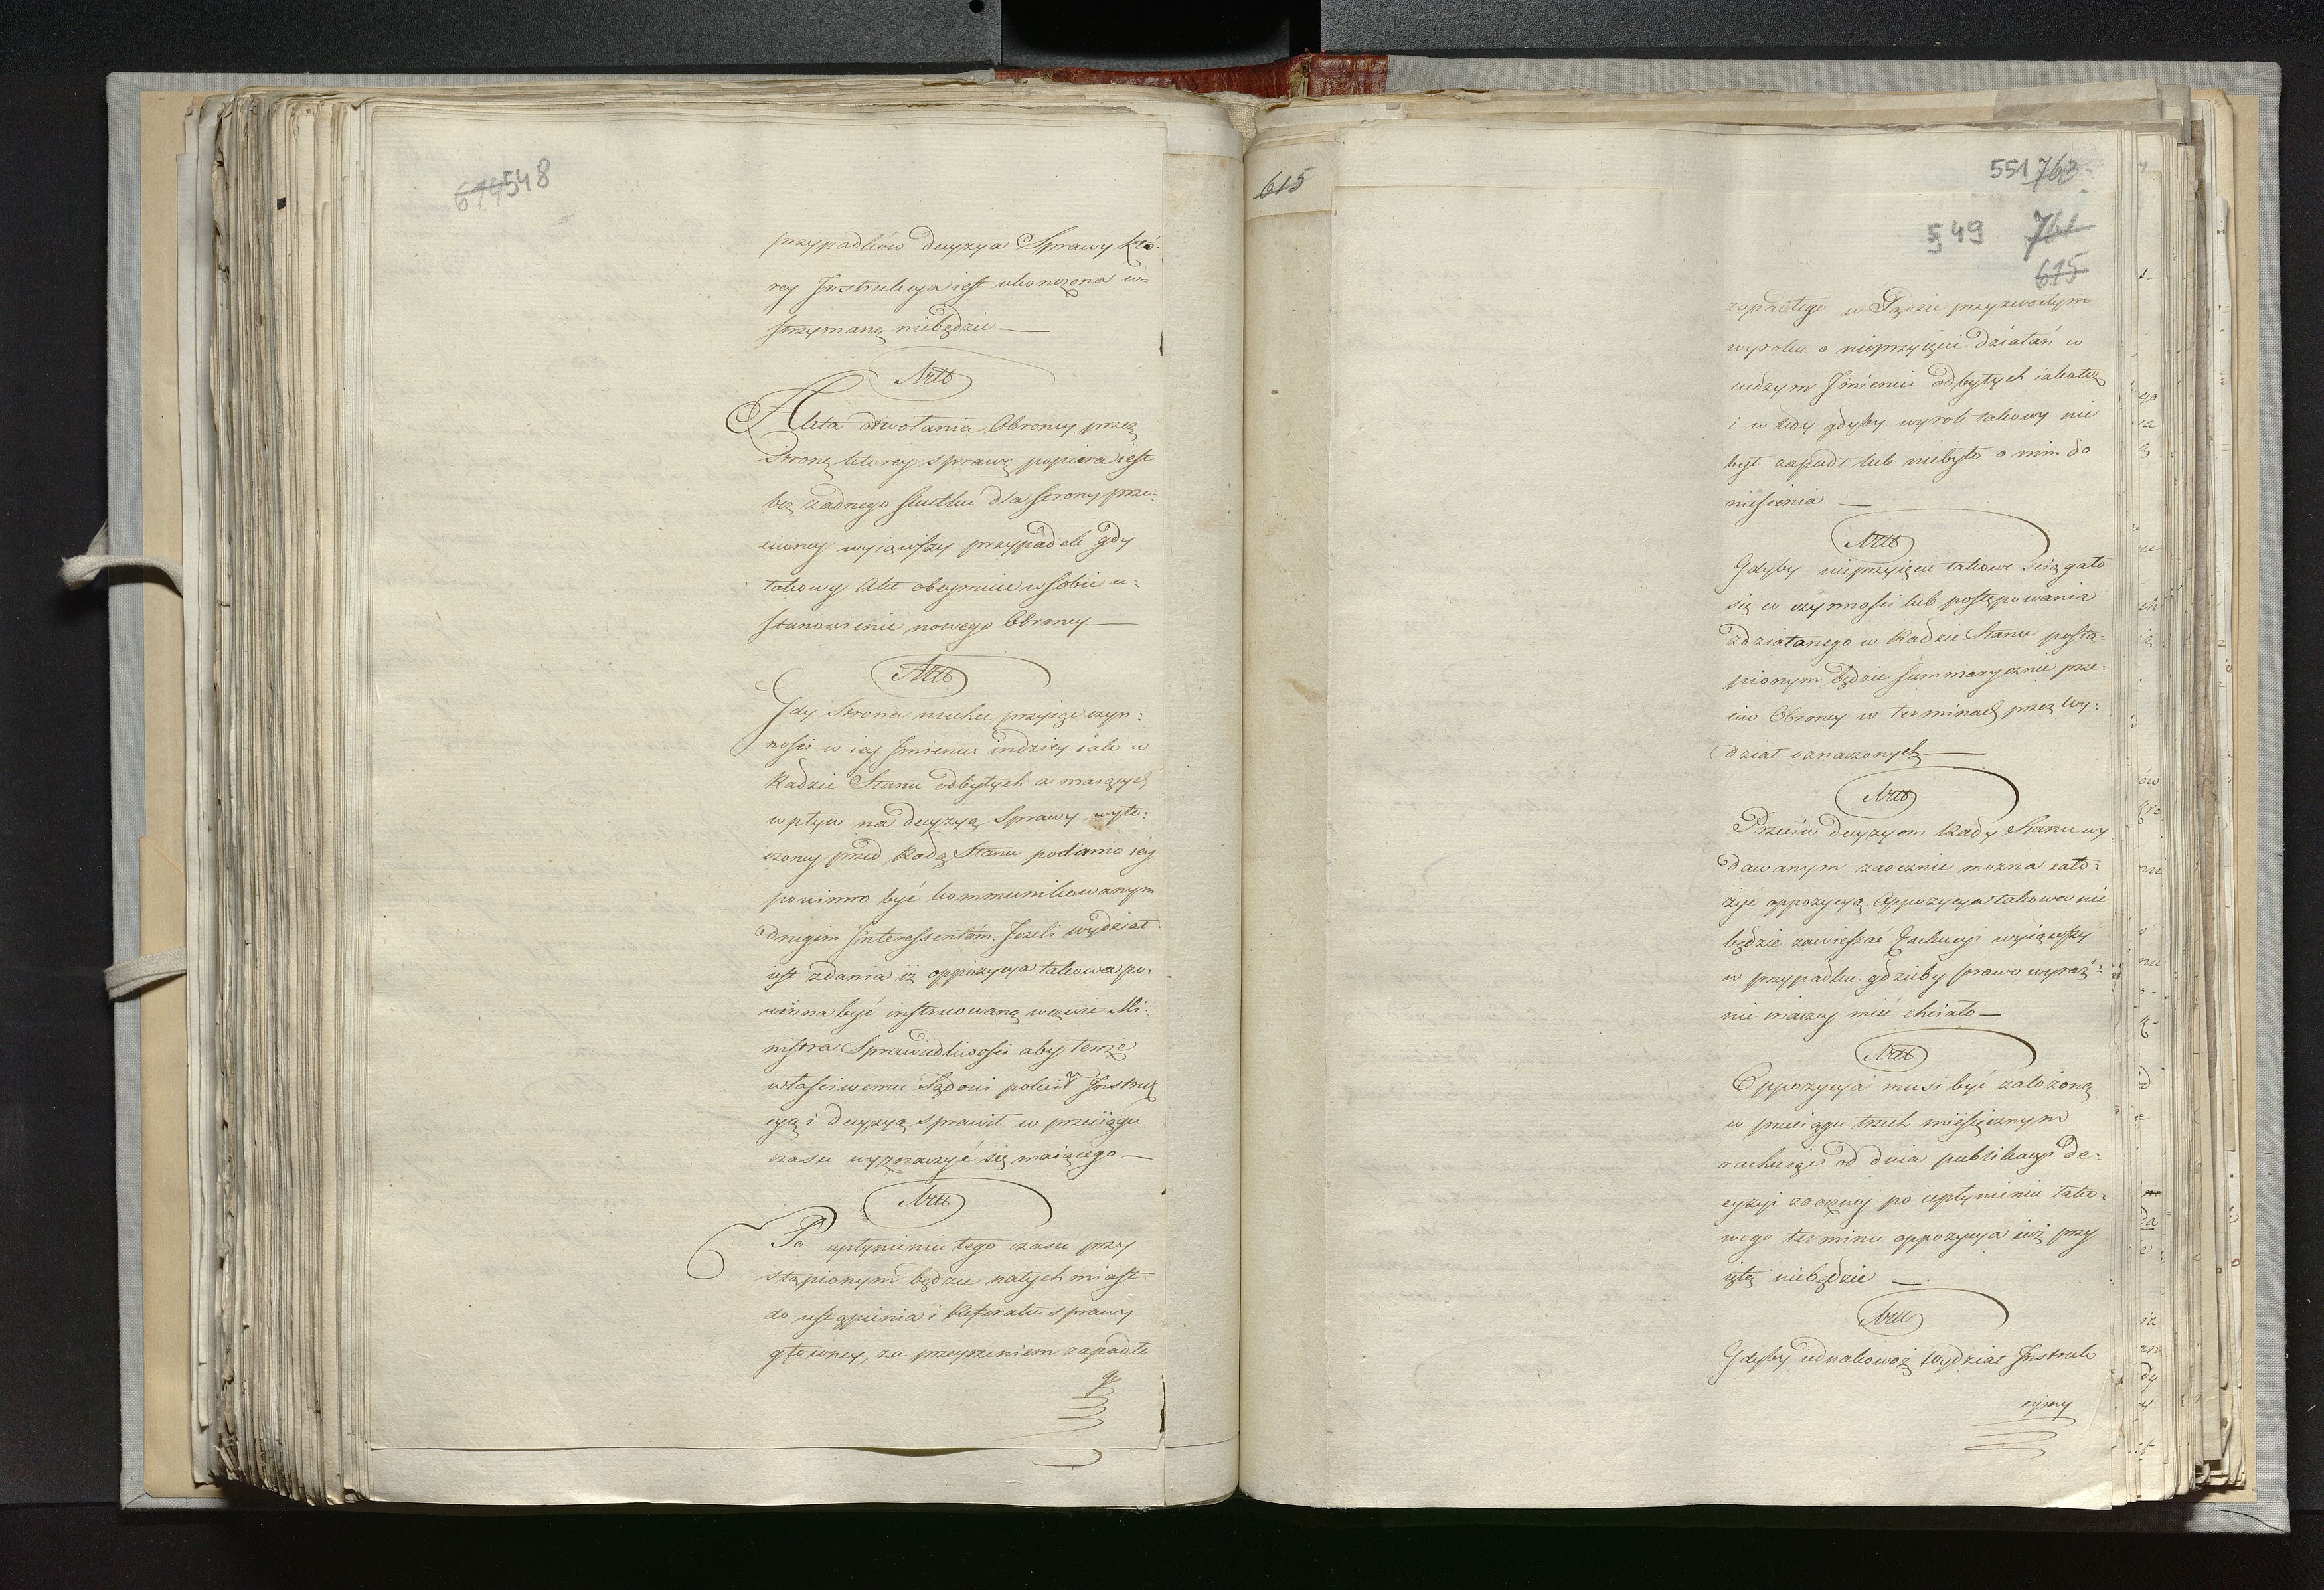 614 548
przypadków decyzya Sprawy któ-
rey Instrukcya iest ukonczona w=
strzymaną niebędzie —
Artt
Akta odwołania Obroncy przez
Stronę ktorey sprawę popiera iest
bez żadnego skutku dla strony prze-
ciwney wyiąwszy przypadek gdy
takowy Akt obeymuie w sobie u-
stanowienie nowego Obroncy —
Artt
Gdy Strona niechce przyiąć czyn:
ności w iey Jmieniu indziey iak w
Radzie Stanu odbytych a maiących
wpływ na decyzyą Sprawy wyto:
czoney przed Radą Stanu podanie iey
powinno być kommunikowanym
drugim Interessentóm. Jeżeli wydział
iest zdania iż oppozycya takowa po-
winna być instruowaną wezwie Mi:
nistra Sprawiedliwości aby tenże
właściwemu Sądowi polecił Instruk
cyią i decyzyą sprawił w przeciągu
czasu wyznaczyć się maiącego —
Artt
Po upłynieniu tego czasu przy
stąpionym będzie natychmiast
do ustąpienia i Referatu sprawy
głowney, za przeyrzeniem zapadłe
go
615
551 763
549 761
615
zapadłego w Sądzie przyzwoitym
wyroku o nieprzyięciu działań w
cudzym Jmieniu odbytych iakoteż
i wtedy gdyby wyrok takowy nie
był zapadł lub niebyło o nim do
niesienia —
Artt
Gdyby nieprzyięcie takowe ściągało
się co czynności lub postępowania
zdziałanego w Radzie Stanu postą-
pionym będzie summarycznie prze-
ciw Obroncy w terminach przez Wy-
dział oznaczonych —
Artt
Przeciw decyzyom Rady Stanu wy
dawanym zaocznie można zało-
żyć oppozycyą. Oppozycya takowa nie
będzie zawieszać Exekucyi wyiąwszy
w przypadku gdzieby prawo wyraź-
nie inaczey mieć chciało —
Artt
Oppozycya musi być założoną
w przeciągu trzech miesięcznym
rachuiąc od dnia publikacyi de-
cyzyi zaoczney po upłynieniu tako-
wego terminu oppozycya iuż przy
iętą niebędzie —
Artt
Gdyby iednakowoż Wydział Instruk
cyiny